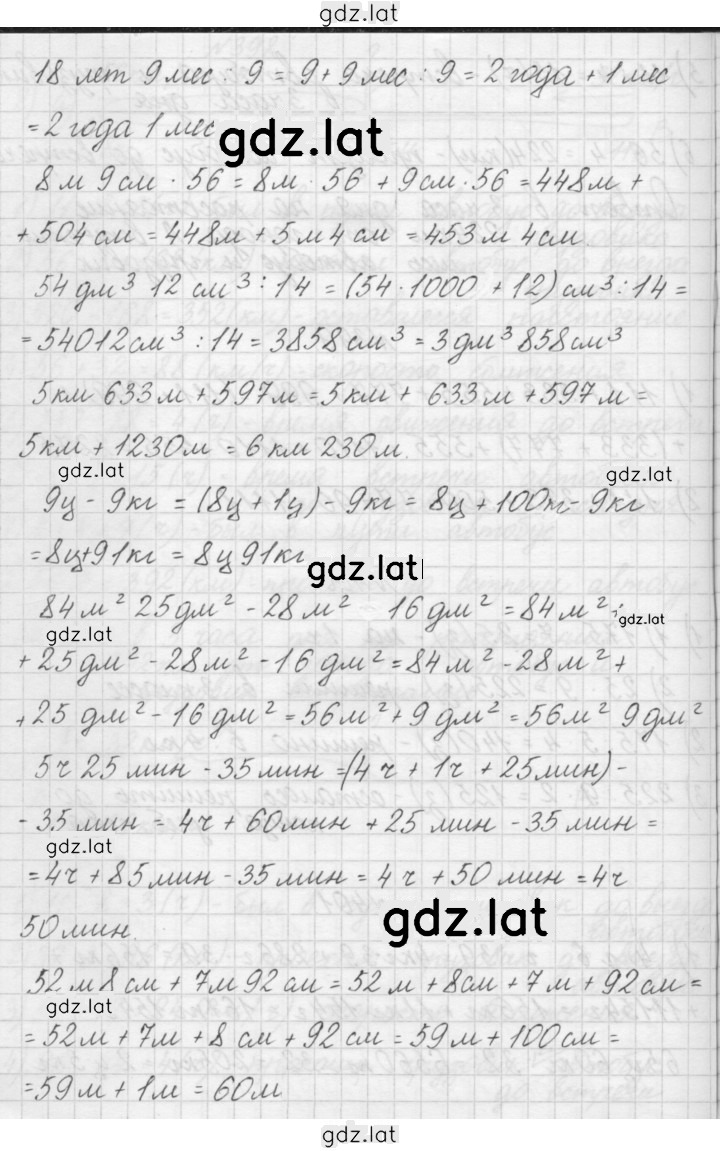 gdz.lat
18 лет 9 мес : 9 = 9 + 9 мес : 9 = 2 года + 1 мес
= 2 года 1 мес
gdz.lat
8 м 9 см · 56 = 8 м · 56 + 9 см · 56 = 448 м +
+ 504 см = 448 м + 5 м 4 см = 453 м 4 см
54 дм³ 12 см³ : 14 = (54 · 1000 + 12) см³ : 14 =
= 54012 см³ : 14 = 3858 см³ = 3 дм³ 858 см³
5 км 633 м + 597 м = 5 км + 633 м + 597 м =
5 км + 1230 м = 6 км 230 м.
gdz.lat
gdz.lat
9 ц - 9 кг = (8 ц + 1 ц) - 9 кг = 8 ц + 100 т - 9 кг
= 8 ц + 91 кг = 8 ц 91 кг
gdz.lat
84 м² 25 дм² - 28 м² 16 дм² = 84 м² +
gdz.lat
gdz.lat
+ 25 дм² - 28 м² - 16 дм² = 84 м² - 28 м² +
+ 25 дм² - 16 дм² = 56 м² + 9 дм² = 56 м² 9 дм²
5 ч 25 мин - 35 мин = (4 ч + 1 ч + 25 мин) -
- 35 мин = 4 ч + 60 мин + 25 мин - 35 мин =
gdz.lat
= 4 ч + 85 мин - 35 мин = 4 ч + 50 мин = 4 ч
50 мин.
gdz.lat
52 м 8 см + 7 м 92 см = 52 м + 8 см + 7 м + 92 см =
gdz.lat
= 52 м + 7 м + 8 см + 92 см = 59 м + 100 см =
= 59 м + 1 м = 60 м
gdz.lat